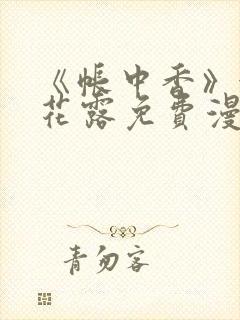 《帐中香》
花露免费漫
青勿客